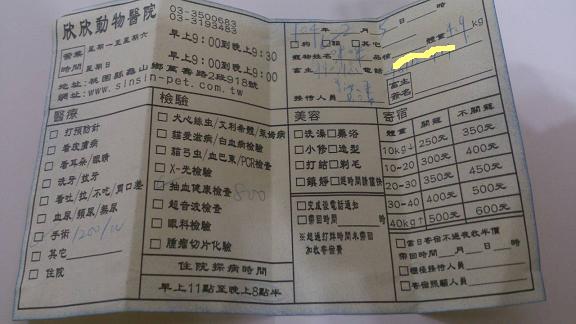 欣欣動物醫院
03-3500683
03-3193483
營業時間
星期一至星期六 早上9:00到晚上9:30
星期日 早上9:00到晚上6:00
地址:桃園縣龜山鄉萬壽路2段918號
網址:www.sinsin-pet.com.tw
月 日 時
□狗 □貓 □其它
體重4.9kg
寵物姓名
品種
畜主
電話
畜主簽名
接待人員
醫療
□打預防針
□看皮膚病
□看耳朵/眼睛
□洗牙/拔牙
□看吐/拉/不吃/胃口差
□血尿/頻尿/無尿
□手術
□其它
□住院
檢驗
□犬心絲虫/艾利希體/萊姆病
□貓愛滋病/白血病檢驗
□貓弓虫/血巴東/PCR檢查
□X-光檢驗
□抽血健康檢查 800
□超音波檢查
□眼科檢驗
□腫瘤切片化驗
住院探病時間
早上11點至晚上8點半
美容
□洗澡 □藥浴
□小修 □造型
□打結 □剃毛
□鎮靜
□完成後電話通知
□帶回時間 時
※超過打烊時間未帶回
加收寄宿費
寄宿
體重 開籠 不開籠
10kg↓ 250元 350元
10~20 300元 400元
20~30 350元 450元
30~40 400元 500元
40kg↑ 500元 600元
□當日寄宿不過夜收半價
帶回時間 月 日 時
□櫃檯接待人員
□寄宿照顧人員